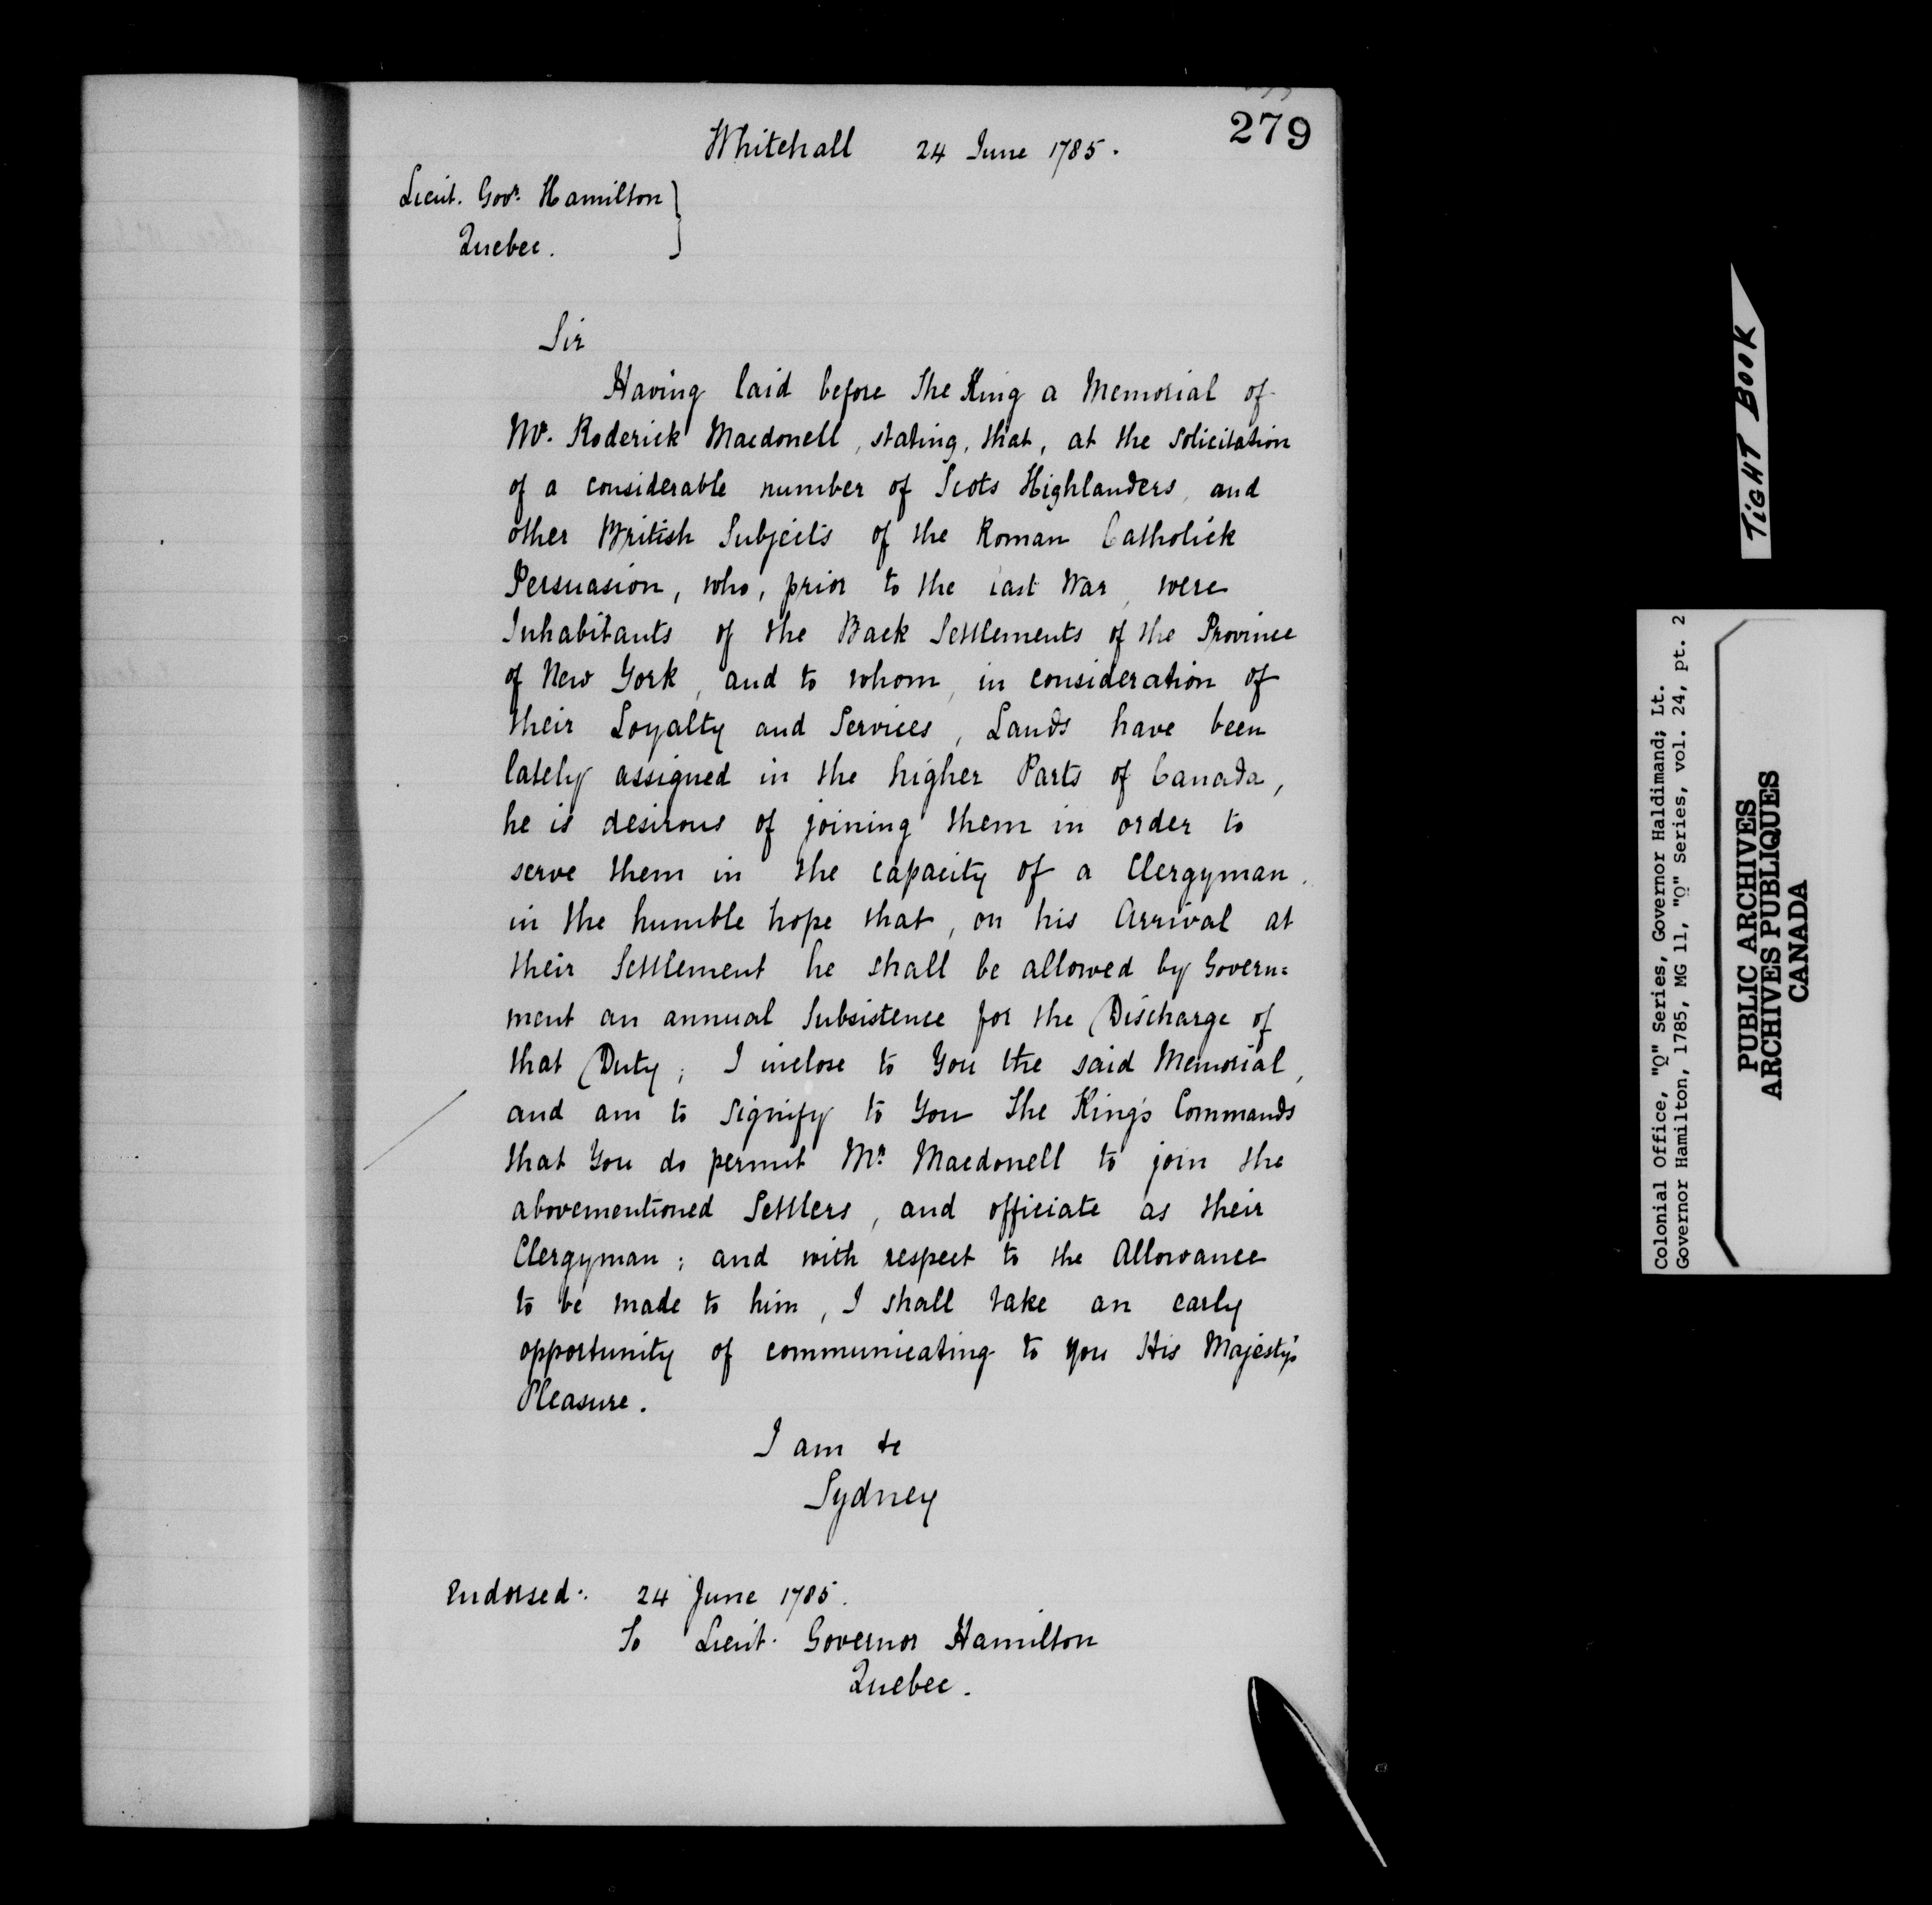 279
Whitehall 24 June 1785.
Lieut. Govr. Hamilton
Quebec.
Sir
Having laid before The King a Memorial of
Mr. Roderick Macdonell, stating, that, at the solicitation
of a considerable number of Scots Highlanders, and
other British Subjects of the Roman Catholick
Persuasion, who, prior to the last War, were
Inhabitants of the Back Settlements of the Province
of New York, and to whom, in consideration of
their Loyalty and Services, Lands have been
lately assigned in the higher Parts of Canada,
he is desirous of joining them in order to
serve them in the capacity of a Clergyman,
in the humble hope that, on his Arrival at
their Settlement he shall be allowed by Govern=
ment an annual Subsistence for the Discharge of
that Duty; I inclose to You the said Memorial,
and am to signify to You The King's Commands
that You do permit Mr. Macdonell to join the
abovementioned Settlers, and officiate as their
Clergyman; and with respect to the Allowance
to be made to him, I shall take an early
opportunity of communicating to you His Majesty's
Pleasure.
I am &c
Sydney
Endorsed: 24 June 1785.
To Lieut. Governor Hamilton
Quebec.
TIGHT BOOK
Colonial Office, "Q" Series, Governor Haldimand; Lt.
Governor Hamilton, 1785, MG 11, "Q" Series, vol. 24, pt. 2
PUBLIC ARCHIVES
ARCHIVES PUBLIQUES
CANADA